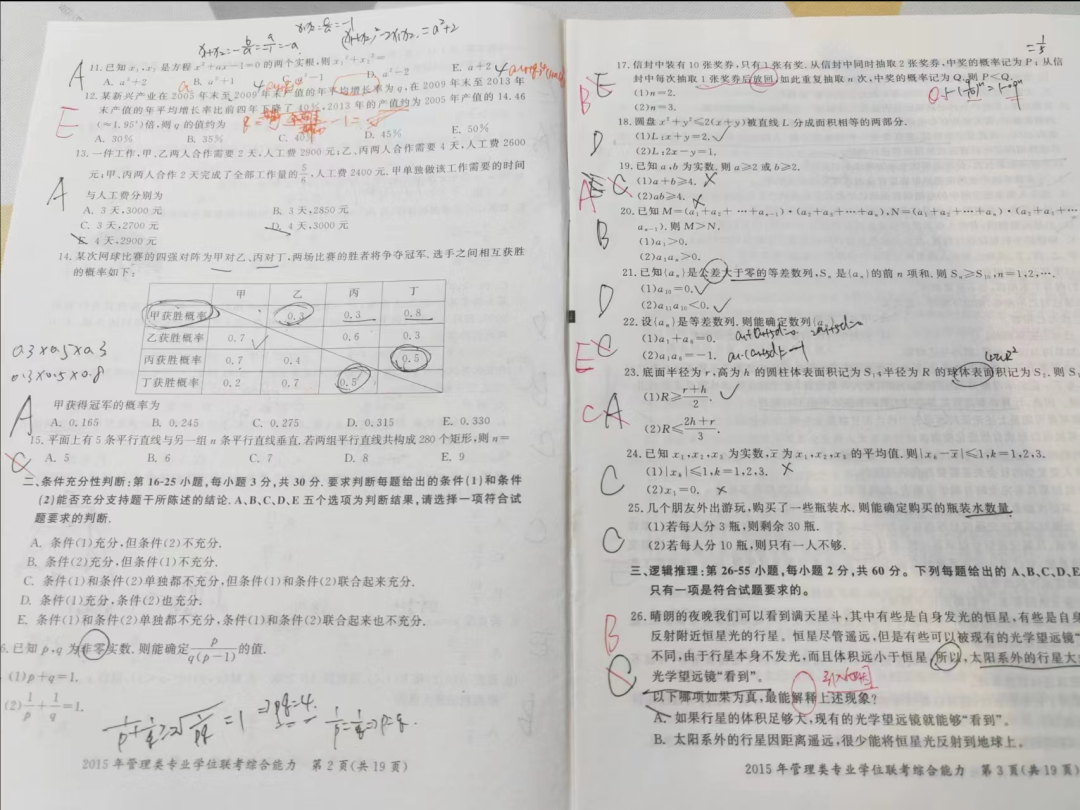 11.已知x₁,x₂是方程x²+ax-1=0的两个实根,则x₁²+x₂²=
A. a²+2 B. a²+1 C. a²-1 D. a²-2 E. a+2
12.某新兴产业在2005年末至2009年末产值的年平均增长率为q,在2009年末至2013年
末产值的年平均增长率比前四年下降了40%,2013年的产值约为2005年产值的14.46
(≈1.95⁴)倍,则q的值约为
A. 30% B. 35% C. 40% D. 45% E. 50%
13.一件工作,甲、乙两人合作需要2天,人工费2900元;乙、丙两人合作需要4天,人工费2600
元;甲、丙两人合作2天完成了全部工作量的5/6,人工费2400元.甲单独做该工作需要的时间
与人工费分别为
A. 3天,3000元 B. 3天,2850元
C. 3天,2700元 D. 4天,3000元
E. 4天,2900元
14.某次网球比赛的四强对阵为甲对乙、丙对丁,两场比赛的胜者将争夺冠军.选手之间相互获胜
的概率如下:
甲 乙 丙 丁
甲获胜概率 0.3 0.3 0.8
乙获胜概率 0.7 0.6 0.3
丙获胜概率 0.7 0.4 0.5
丁获胜概率 0.2 0.7 0.5
0.3×0.5×0.3
0.3×0.5×0.8
甲获得冠军的概率为
A. 0.165 B. 0.245 C. 0.275 D. 0.315 E. 0.330
15.平面上有5条平行直线与另一组n条平行直线垂直.若两组平行直线共构成280个矩形,则n=
A. 5 B. 6 C. 7 D. 8 E. 9
二、条件充分性判断:第16-25小题,每小题3分,共30分.要求判断每题给出的条件(1)和条件
(2)能否充分支持题干所陈述的结论.A、B、C、D、E五个选项为判断结果,请选择一项符合试
题要求的判断.
A. 条件(1)充分,但条件(2)不充分.
B. 条件(2)充分,但条件(1)不充分.
C. 条件(1)和条件(2)单独都不充分,但条件(1)和条件(2)联合起来充分.
D. 条件(1)充分,条件(2)也充分.
E. 条件(1)和条件(2)单独都不充分,条件(1)和条件(2)联合起来也不充分.
6.已知p,q为非零实数.则能确定p/q(p-1)的值.
(1)p+q=1.
(2)1/p+1/q=1.
2015年管理类专业学位联考综合能力 第2页(共19页)
17.信封中装有10张奖券,只有1张有奖.从信封中同时抽取2张奖券,中奖的概率记为P;从信
封中每次抽取1张奖券后放回,如此重复抽取n次,中奖的概率记为Q.则P<Q.
(1)n=2.
(2)n=3.
18.圆盘x²+y²≤2(x+y)被直线L分成面积相等的两部分.
(1)L:x+y=2.
(2)L:2x-y=1.
19.已知a,b为实数.则a≥2或b≥2.
(1)a+b≥4.
(2)ab≥4.
20.已知M=(a₁+a₂+…+aₙ₋₁)·(a₂+a₃+…+aₙ),N=(a₁+a₂+…+aₙ)·(a₂+a₃+…
aₙ₋₁).则M>N.
(1)a₁>0.
(2)a₁aₙ>0.
21.已知{aₙ}是公差大于零的等差数列,Sₙ是{aₙ}的前n项和.则Sₙ≥S₁₀,n=1,2,….
(1)a₁₀=0.
(2)a₁₁a₁₀<0.
22.设{aₙ}是等差数列.则能确定数列{aₙ}.
(1)a₁+a₆=0.
(2)a₁a₆=-1.
23.底面半径为r,高为h的圆柱体表面积记为S₁,半径为R的球体表面积记为S₂.则S
(1)R≥r+h/2.
(2)R≤2h+r/3.
24.已知x₁,x₂,x₃为实数,x̄为x₁,x₂,x₃的平均值.则|xₖ-x̄|≤1,k=1,2,3.
(1)|xₖ|≤1,k=1,2,3.
(2)x₁=0.
25.几个朋友外出游玩,购买了一些瓶装水.则能确定购买的瓶装水数量.
(1)若每人分3瓶,则剩余30瓶.
(2)若每人分10瓶,则只有一人不够.
三、逻辑推理:第26-55小题,每小题2分,共60分。下列每题给出的A、B、C、D、E
只有一项是符合试题要求的。
26.晴朗的夜晚我们可以看到满天星斗,其中有些是自身发光的恒星,有些是自身
反射附近恒星光的行星。恒星尽管遥远,但是有些可以被现有的光学望远镜“
不同,由于行星本身不发光,而且体积远小于恒星,所以,太阳系外的行星大
光学望远镜“看到”。
以下哪项如果为真,最能解释上述现象?
A. 如果行星的体积足够大,现有的光学望远镜就能够“看到”。
B. 太阳系外的行星因距离遥远,很少能将恒星光反射到地球上。
2015年管理类专业学位联考综合能力 第3页(共19页)